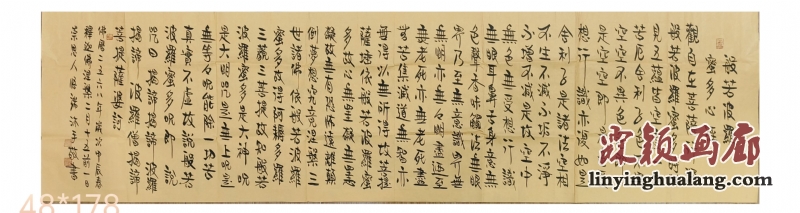 般若波羅
蜜多心
觀自在菩薩
般若波羅蜜多時照
見五蘊皆空
苦厄舍利子色
空空不異色
是空空即
想行識亦復如是
舍利子是諸法空相
不生不滅不垢不淨
不增不減是故空中
無色無受想行識
無眼耳鼻舌身意無
色聲香味觸法無眼
界乃至無意識界無
無明亦無無明盡乃至
無老死亦無老死盡
無苦集滅道無智亦
無得以無所得故菩提
薩埵依般若波羅蜜
多故心無罣礙無罣
礙故無有恐怖遠離顛
倒夢想究竟涅槃三
世諸佛依般若波羅
蜜多故得阿耨多羅
三藐三菩提故知般若
波羅蜜多是大神咒
是大明咒是無上咒是
無等等咒能除一切苦
真實不虛故說般若
波羅蜜多咒即說
咒曰揭諦揭諦波羅
揭諦波羅僧揭諦
菩提薩婆訶
霖颖画廊
linyinghualang.com
48*178